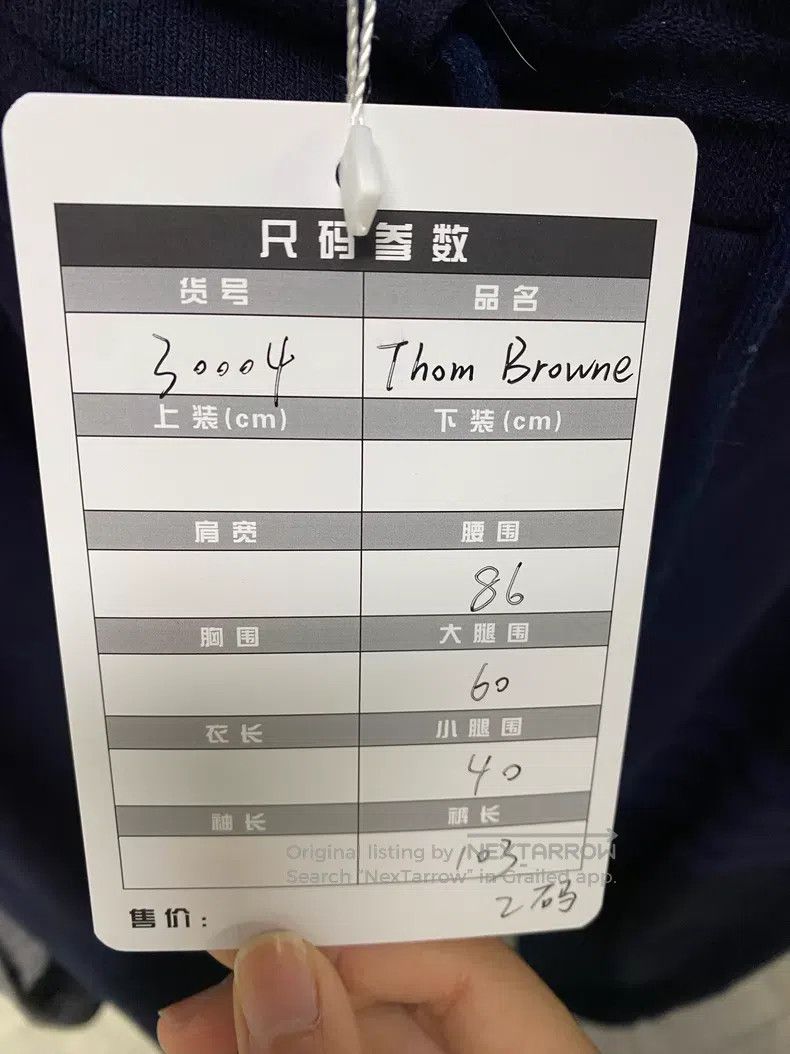 尺码参数
货号 品名
30004 Thom Browne
上装(cm) 下装(cm)
肩宽 腰围
86
胸围 大腿围
60
衣长 小腿围
40
袖长 裤长
103
Original listing by NEXTARROW
Search "NexTarrow" in Grailed app.
2码
售价: